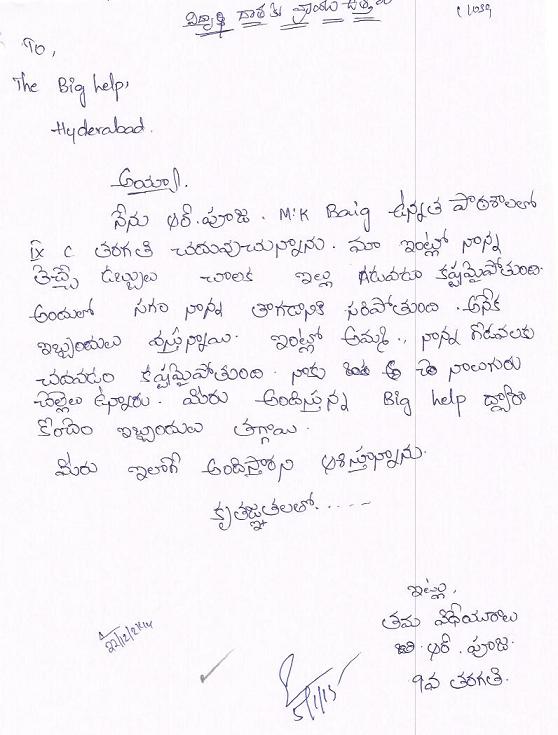 విద్యార్థి దాతకు వ్రాయు ఉత్త
To,
The Big help,
Hyderabad.
అయ్యా.
నేను ఆర్. పూజ. M.K Baig ఉన్నత పాఠశాలలో
IX C తరగతి చదువుచున్నాను. మా ఇంట్లో నాన్న
తెచ్చే డబ్బులు చాలక ఇల్లు గడువడం కష్టమైపోతుంది.
అందులో సగం నాన్న తాగడానికి సరిపోతుంది. అనేక
ఇబ్బందులు వస్తున్నాయి. ఇంట్లో అమ్మ., నాన్న గొడవలకు
చదవడం కష్టమైపోతుంది. నాకు నాలుగురు
చెల్లెలు ఉన్నారు. మీరు అందిస్తున్న Big help ద్వారా
కొంచెం ఇబ్బందులు తగ్గాయి.
మీరు ఇలాగే అందిస్తారని ఆశిస్తున్నాను.
కృతజ్ఞతలతో......
ఇట్లు,
తమ విధేయురాలు
ఆర్. పూజ.
9వ తరగతి.
22/12/2K14
5/1/15